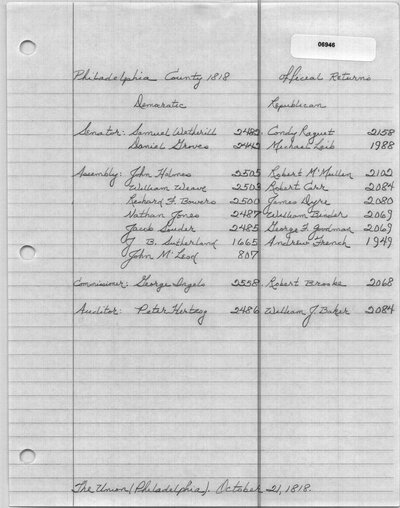 06946
Philadelphia County 1818 Official Returns
Democratic Republican
Senator: Samuel Wetherill 2482 Condy Raguet 2158
Daniel Groves 2442 Michael Leib 1988
Assembly: John Holmes 2505 Robert McMullen 2102
William Weave 2503 Robert Carr 2084
Richard F. Bowers 2500 James Dyre 2080
Nathan Jones 2487 William Binder 2069
Jacob Snider 2485 George F. Goodman 2069
J. B. Sutherland 1665 Andrew French 1949
John McLeod 807
Commissioner: George Ingels 2558 Robert Brooke 2068
Auditor: Peter Hertzog 2486 William J. Baker 2084
The Union (Philadelphia). October 21, 1818.